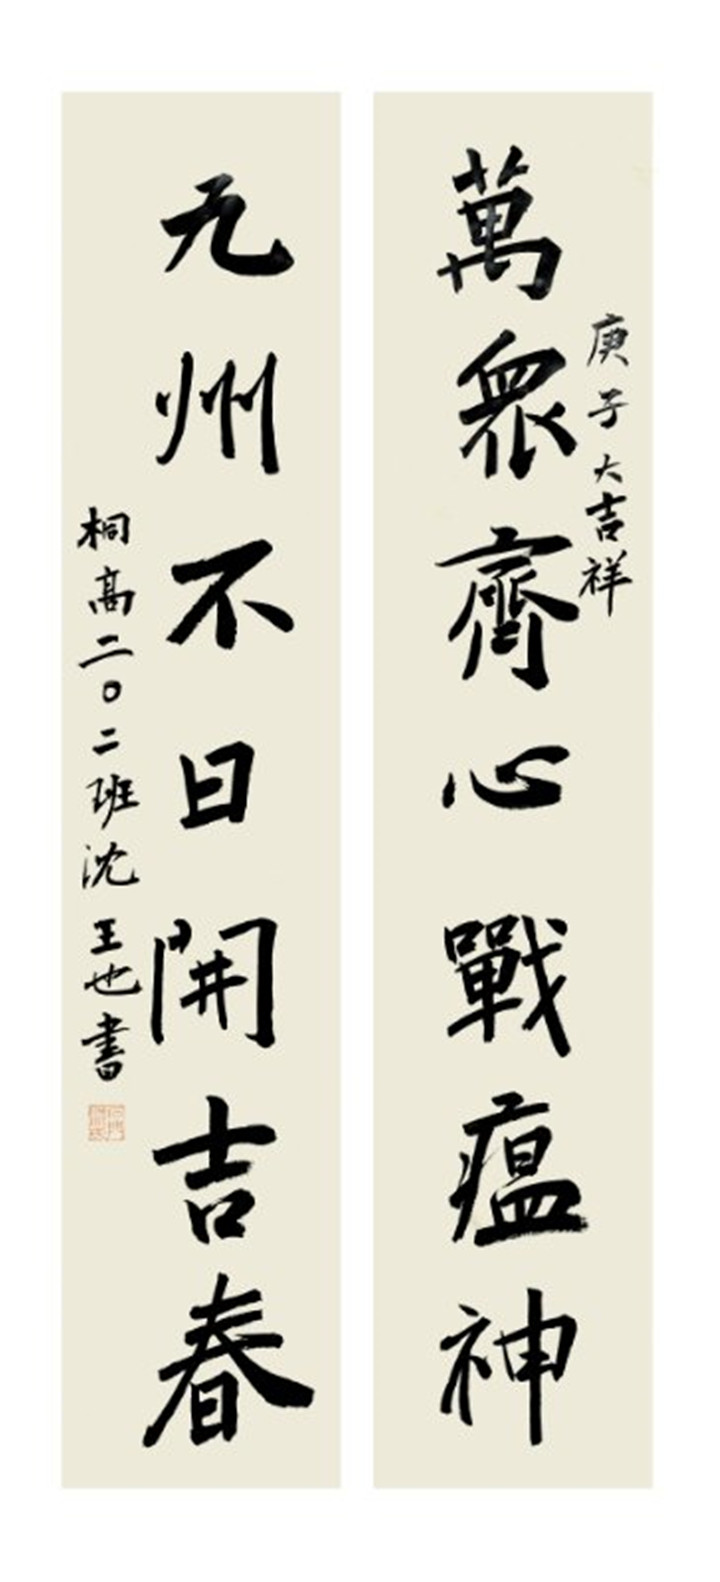 庚子大吉祥
萬眾齊心戰瘟神
九州不日開吉春
桐高二〇二班沈王也書